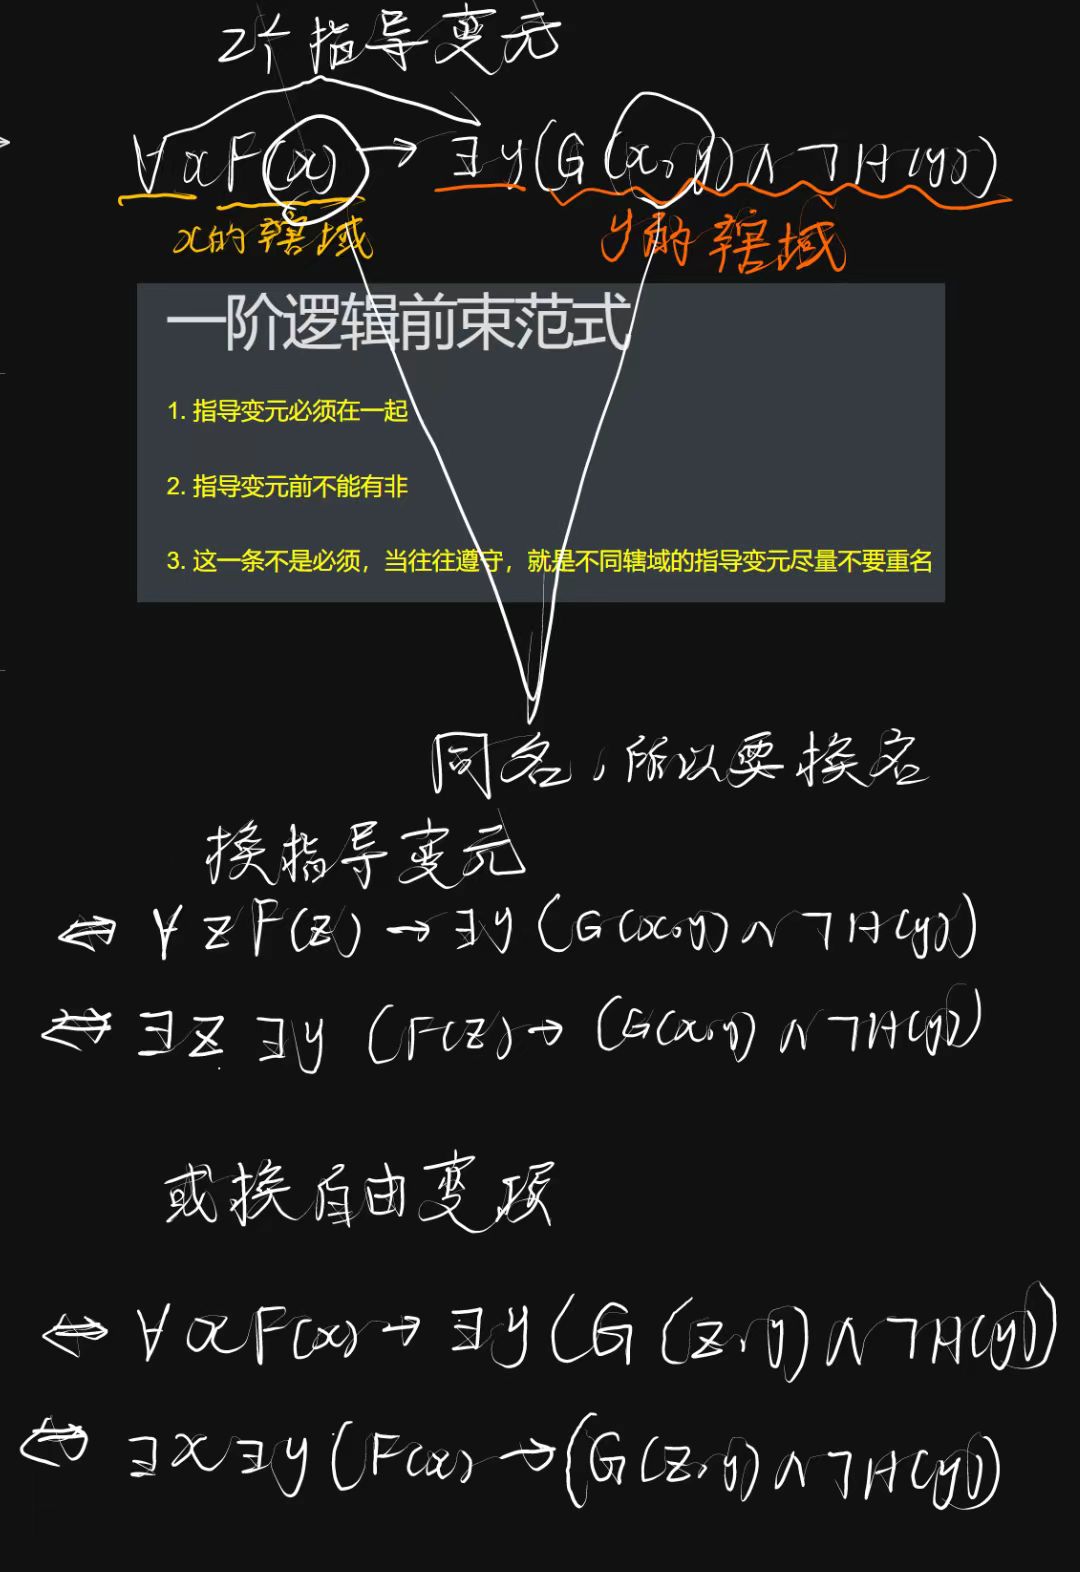 2个指导变元
∀xF(x) → ∃y(G(x,y)∧¬H(y))
x的辖域
y的辖域
一阶逻辑前束范式
1. 指导变元必须在一起
2. 指导变元前不能有非
3. 这一条不是必须，当往往遵守，就是不同辖域的指导变元尽量不要重名
同名，所以要换名
换指导变元
⇔ ∀zF(z) → ∃y(G(x,y)∧¬H(y))
⇔ ∃z∃y(F(z)→(G(x,y)∧¬H(y))
或换自由变
⇔ ∀xF(x) → ∃y(G(z,y)∧¬H(y))
⇔ ∃x∃y(F(x)→(G(z,y)∧¬H(y))